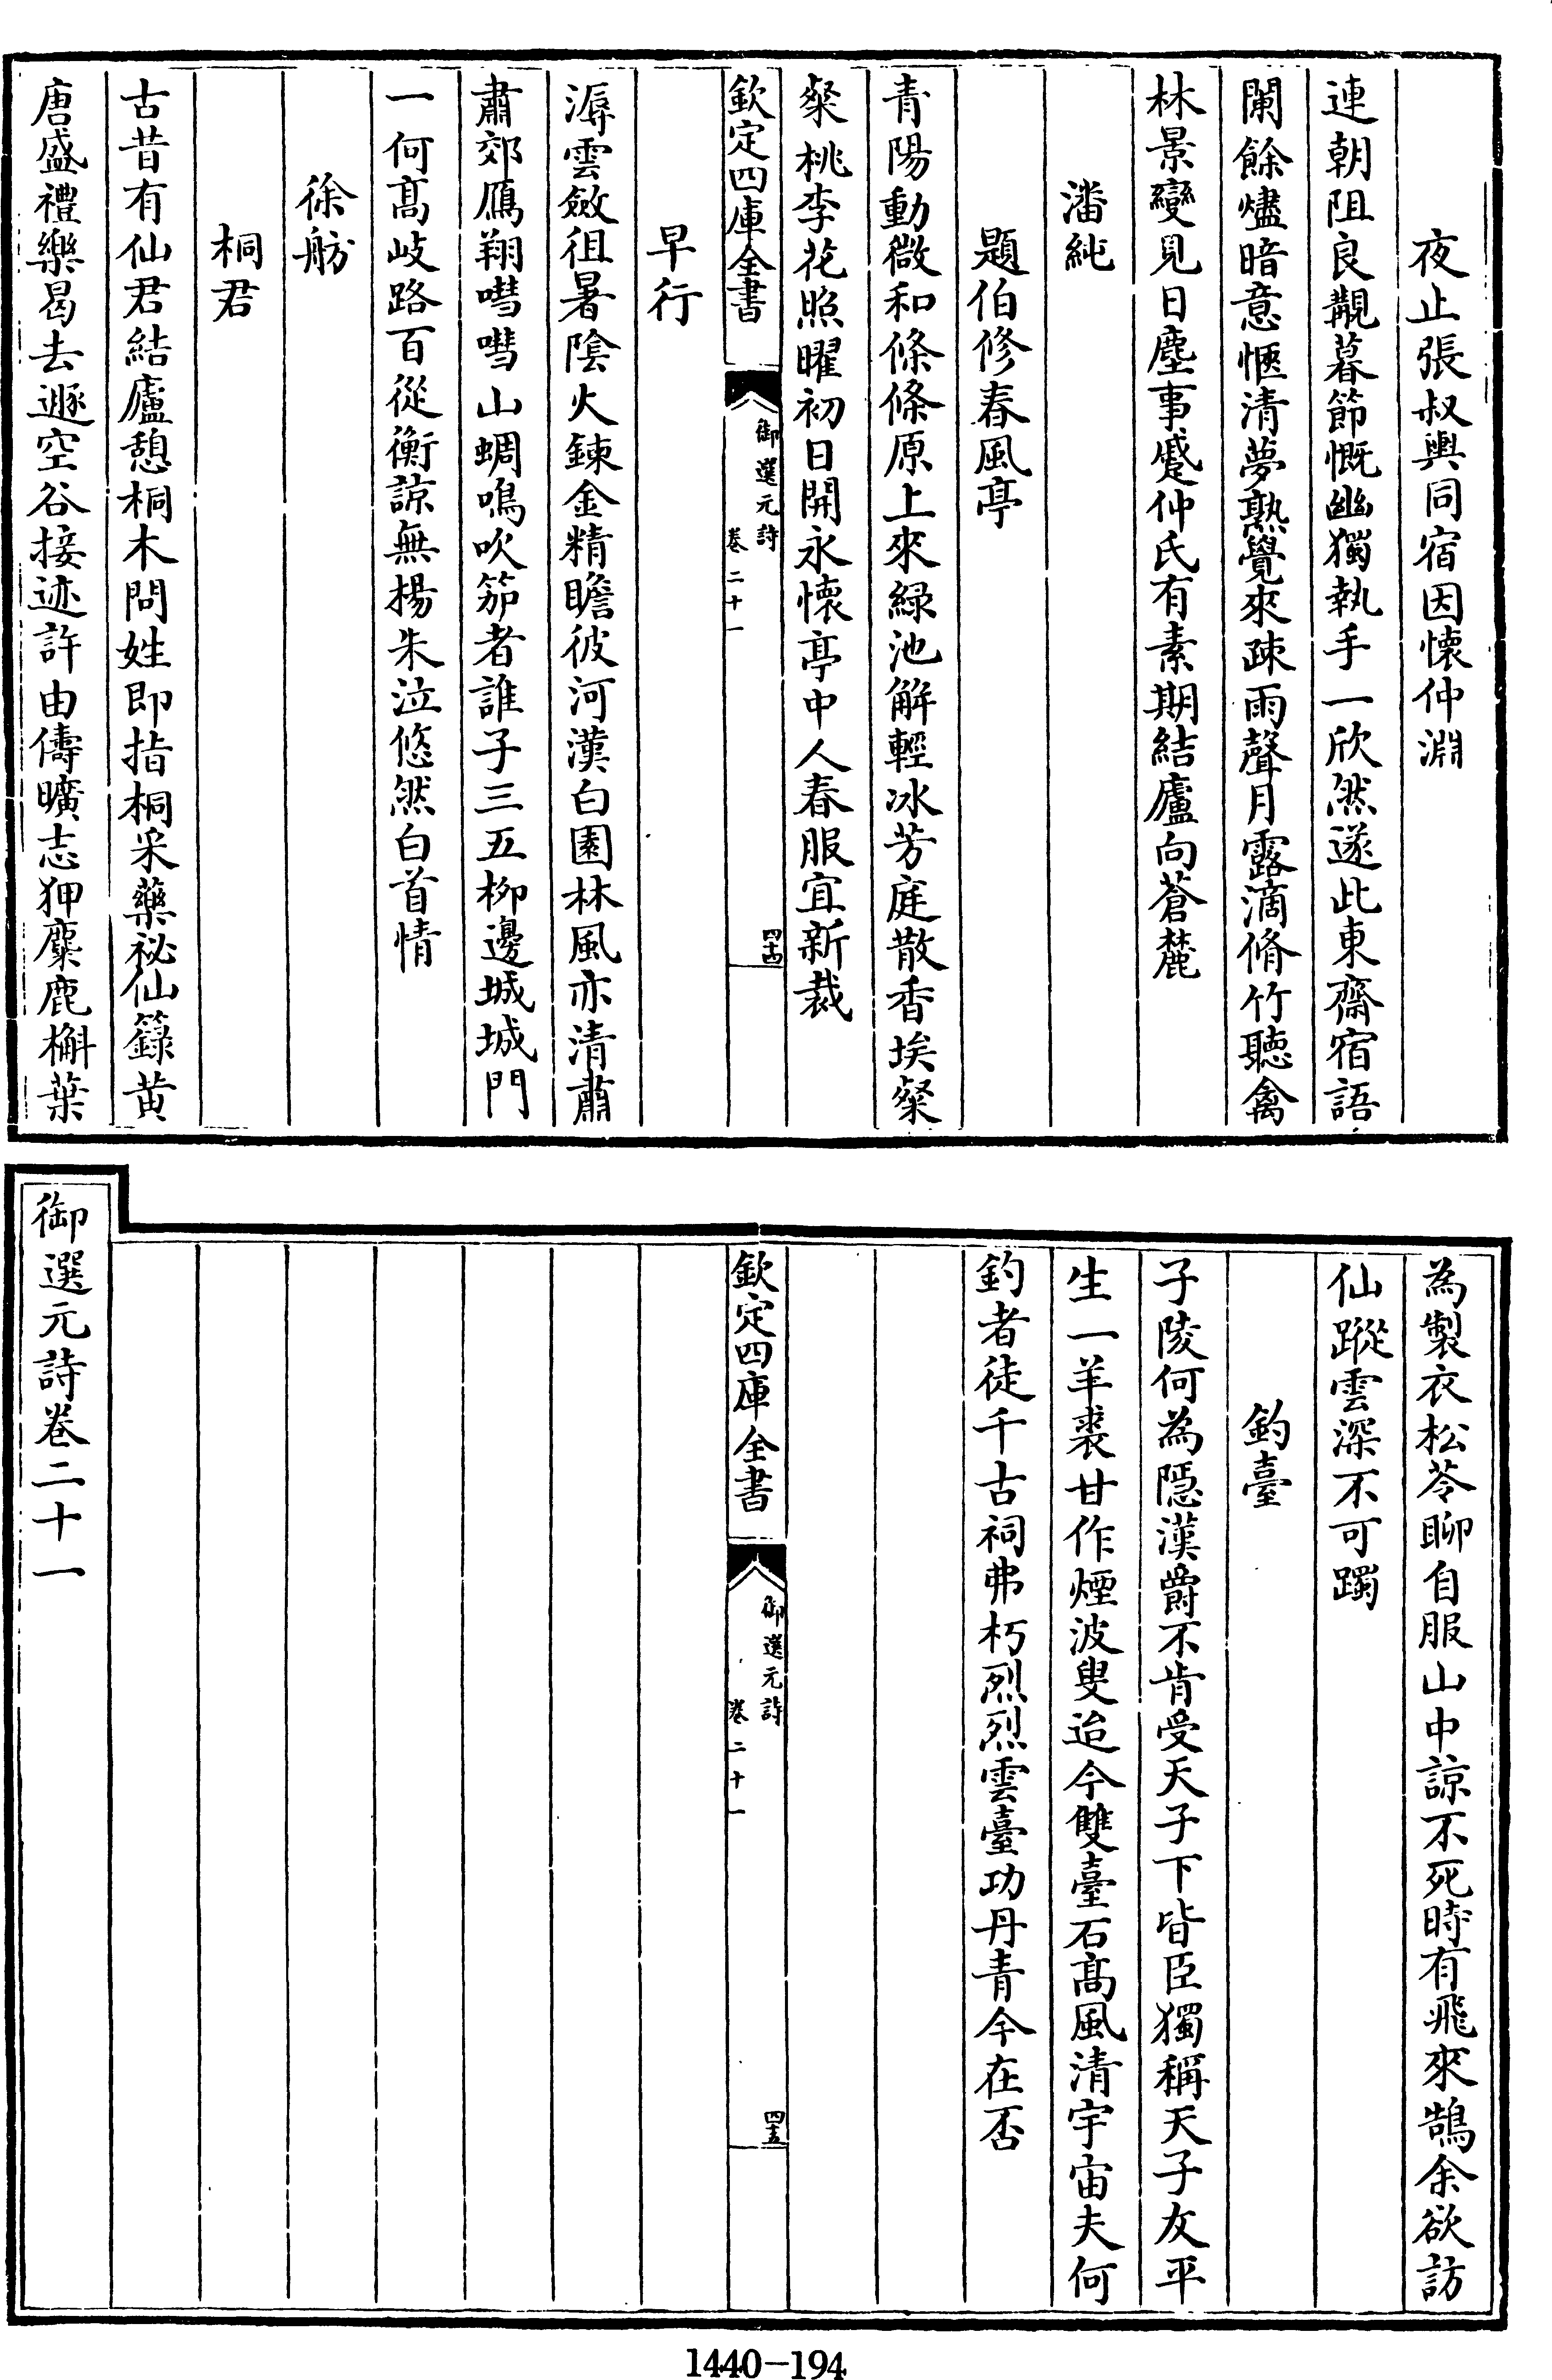 夜止張叔輿同宿因懐仲淵
連朝阻良覯暮節慨幽獨執手一欣然遂此東齋宿語
闌餘燼暗意愜清夢熟覺來疎雨聲月露滴脩竹聽禽
林景變見日塵事蹙仲氏有素期結廬向蒼麓
潘純
題伯修春風亭
青陽動微和條條原上來緑池解輕冰芳庭散香埃粲
粲桃李花照曜初日開永懐亭中人春服宜新裁
欽定四庫全書
御選元詩
卷二十一
四十四
早行
溽雲斂徂暑陰火鍊金精瞻彼河漢白園林風亦清肅
肅郊鴈翔嘒嘒山蜩鳴吹笳者誰子三五栁邊城城門
一何髙岐路百從衡諒無楊朱泣悠然白首情
徐舫
桐君
古昔有仙君結廬憩桐木問姓即指桐采藥祕仙籙黄
唐盛禮樂曷去遯空谷接迹許由儔曠志狎麋鹿槲葉
為製衣松苓聊自服山中諒不死時有飛來鵠余欲訪
仙蹤雲深不可躅
釣臺
子陵何為隠漢爵不肯受天子下皆臣獨稱天子友平
生一羊裘甘作煙波叟迨今雙臺石髙風清宇宙夫何
釣者徒千古祠弗朽烈烈雲臺功丹青今在否
欽定四庫全書
御選元詩
卷二十一
四十五
御選元詩卷二十一
1440-194